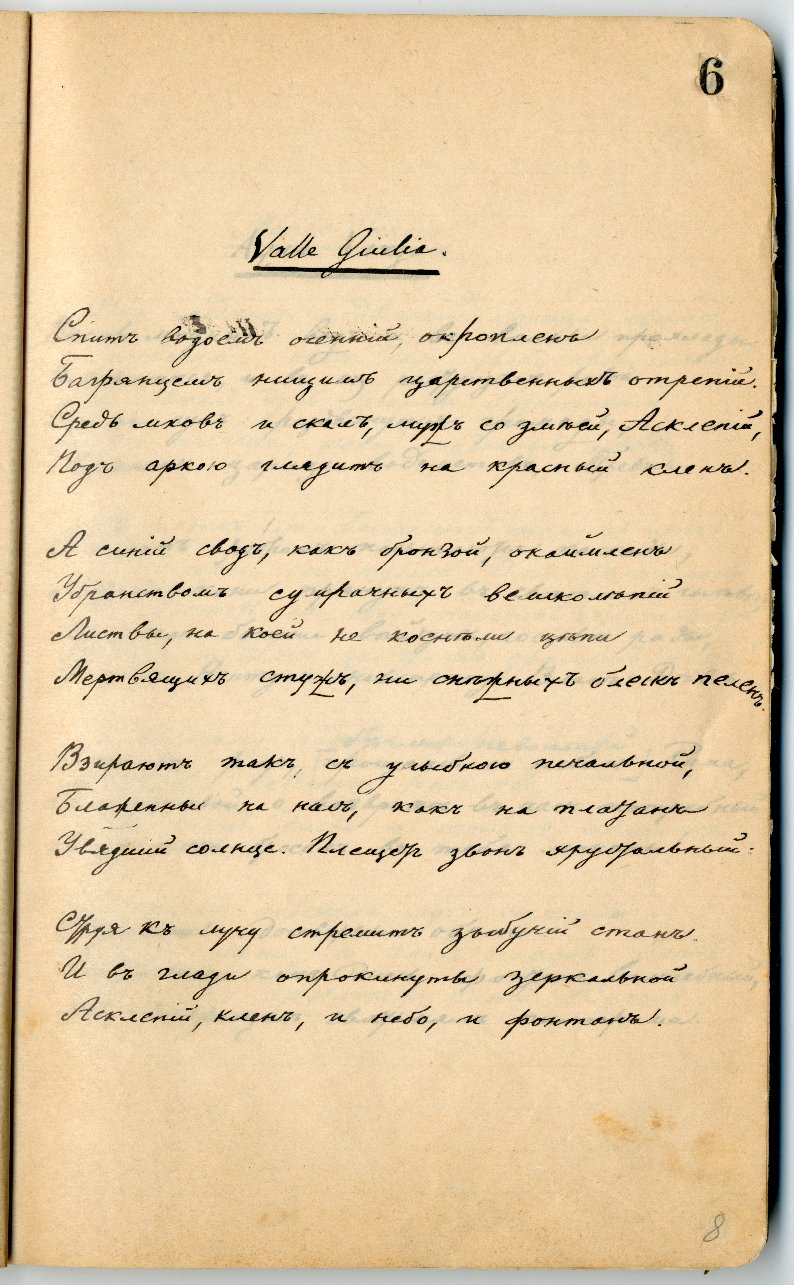 6
Valle Giulia.
Спитъ водоемъ осенній, окропленъ
Багрянцемъ нищимъ царственныхъ отрепій.
Средь мховъ и скалъ, мужъ со змѣей, Асклепій,
Подъ аркою глядитъ на красный кленъ.
А синій сводъ, какъ бронзой, окаймленъ
Убранствомъ сумрачныхъ великолѣпій
Листвы, на коей не коснѣли цѣпи
Мертвящихъ стужъ, ни снѣжныхъ блескъ пеленъ.
Взираютъ такъ, съ улыбкою печальной,
Блаженные на насъ, какъ на платанъ
Увядшій солнце. Плещетъ звонъ хрустальный:
Струя къ лучу стремитъ зыбучій станъ.
И въ глади опрокинуты зеркальной
Асклепій, кленъ, и небо, и фонтанъ.
8